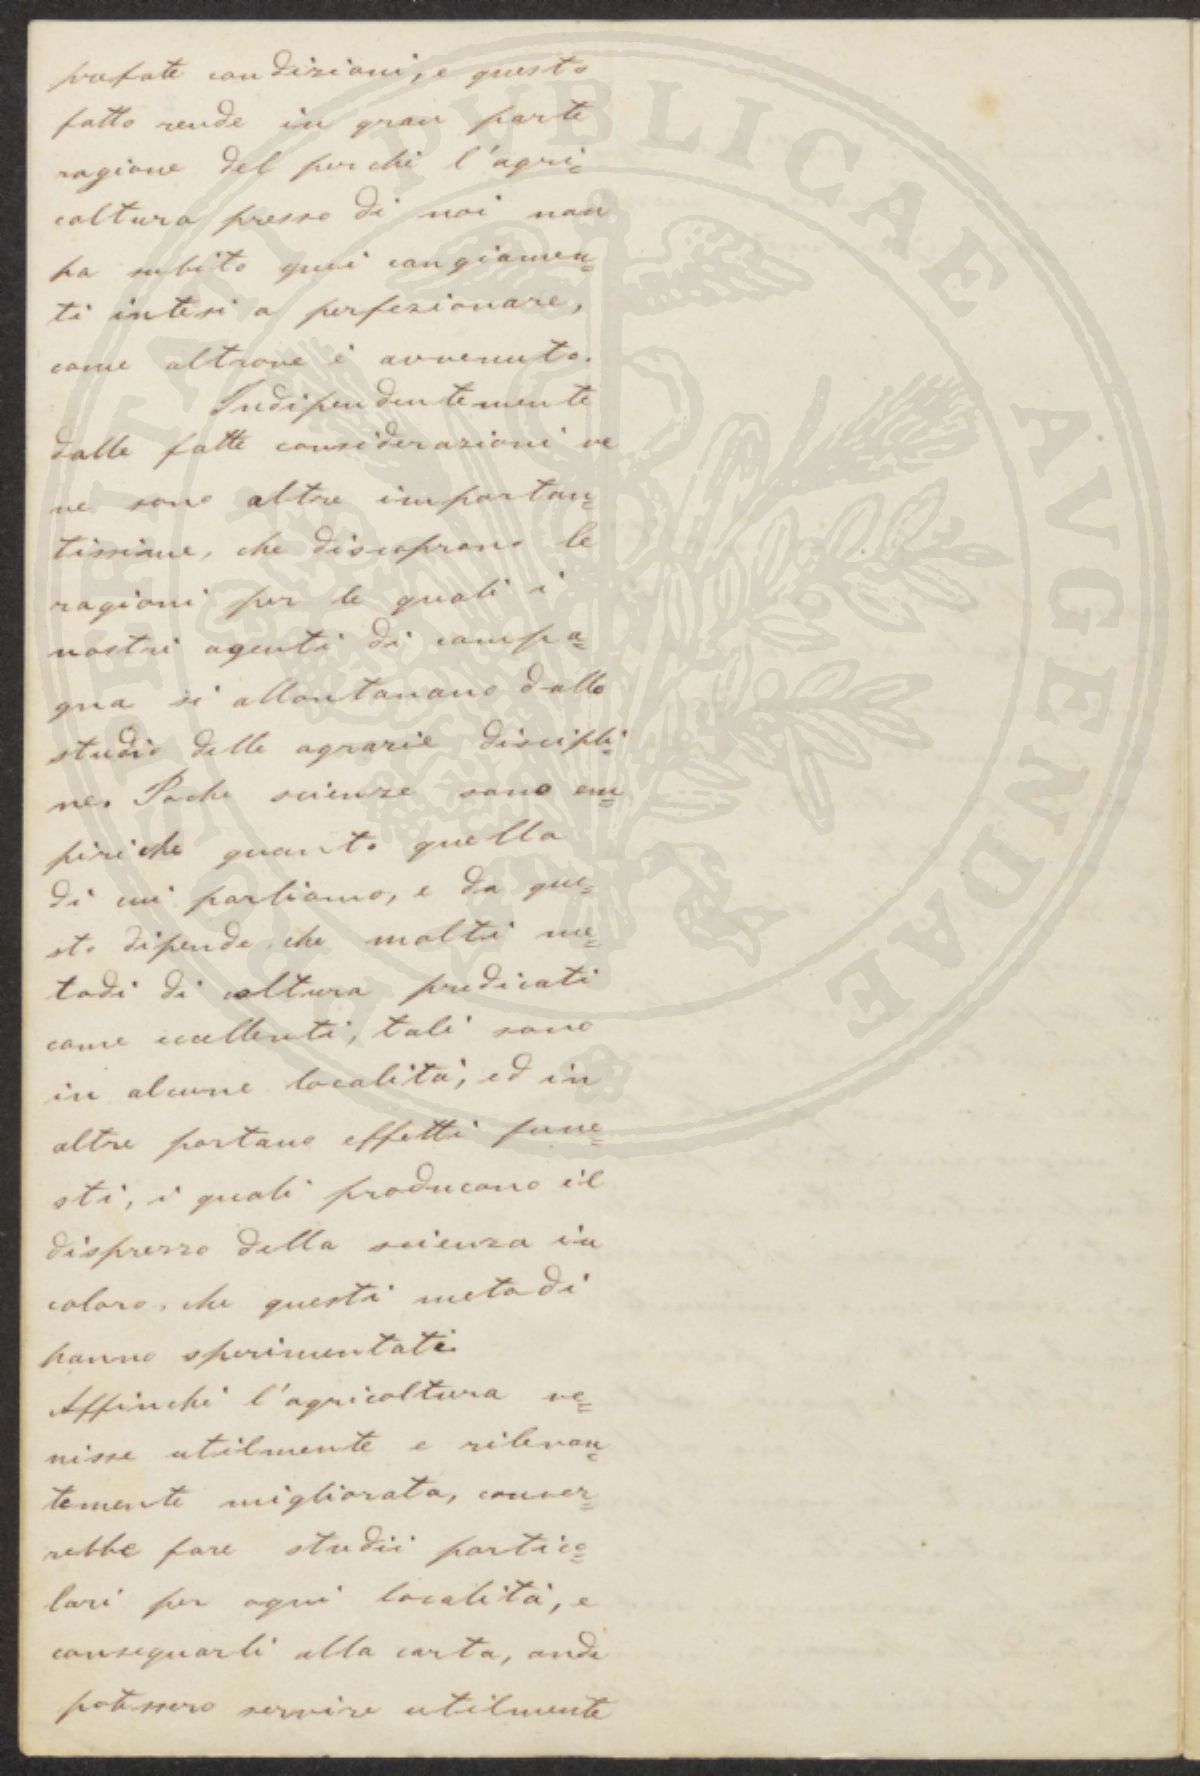 prefate condizioni, e questo
fatto rende in gran parte
ragione del perchè l'agri=
coltura presso di noi non
ha subito quei cangiamen=
ti intesi a perfezionare,
come altrove è avvenuto.
Indipendentemente
dalle fatte considerazioni ve
ne sono altre importan=
tissime, che discoprono le
ragioni per le quali i
nostri agenti di campa=
gna si allontanano dallo
studio delle agrarie discipli=
ne. Poche scienze sono em=
piriche quanto quella
di cui parliamo, e da que=
sto dipende che molti me=
todi di coltura predicati
come eccellenti, tali sono
in alcune località, ed in
altre portano effetti fune=
sti, i quali producono il
disprezzo della scienza in
coloro, che questi metodi
hanno sperimentati.
Affinchè l'agricoltura ve=
nisse utilmente e rilevan=
temente migliorata, conver=
rebbe fare studii partico=
lari per ogni località, e
consegnarli alla carta, onde
potessero servire utilmente
PVBLICAE AVGENDAE